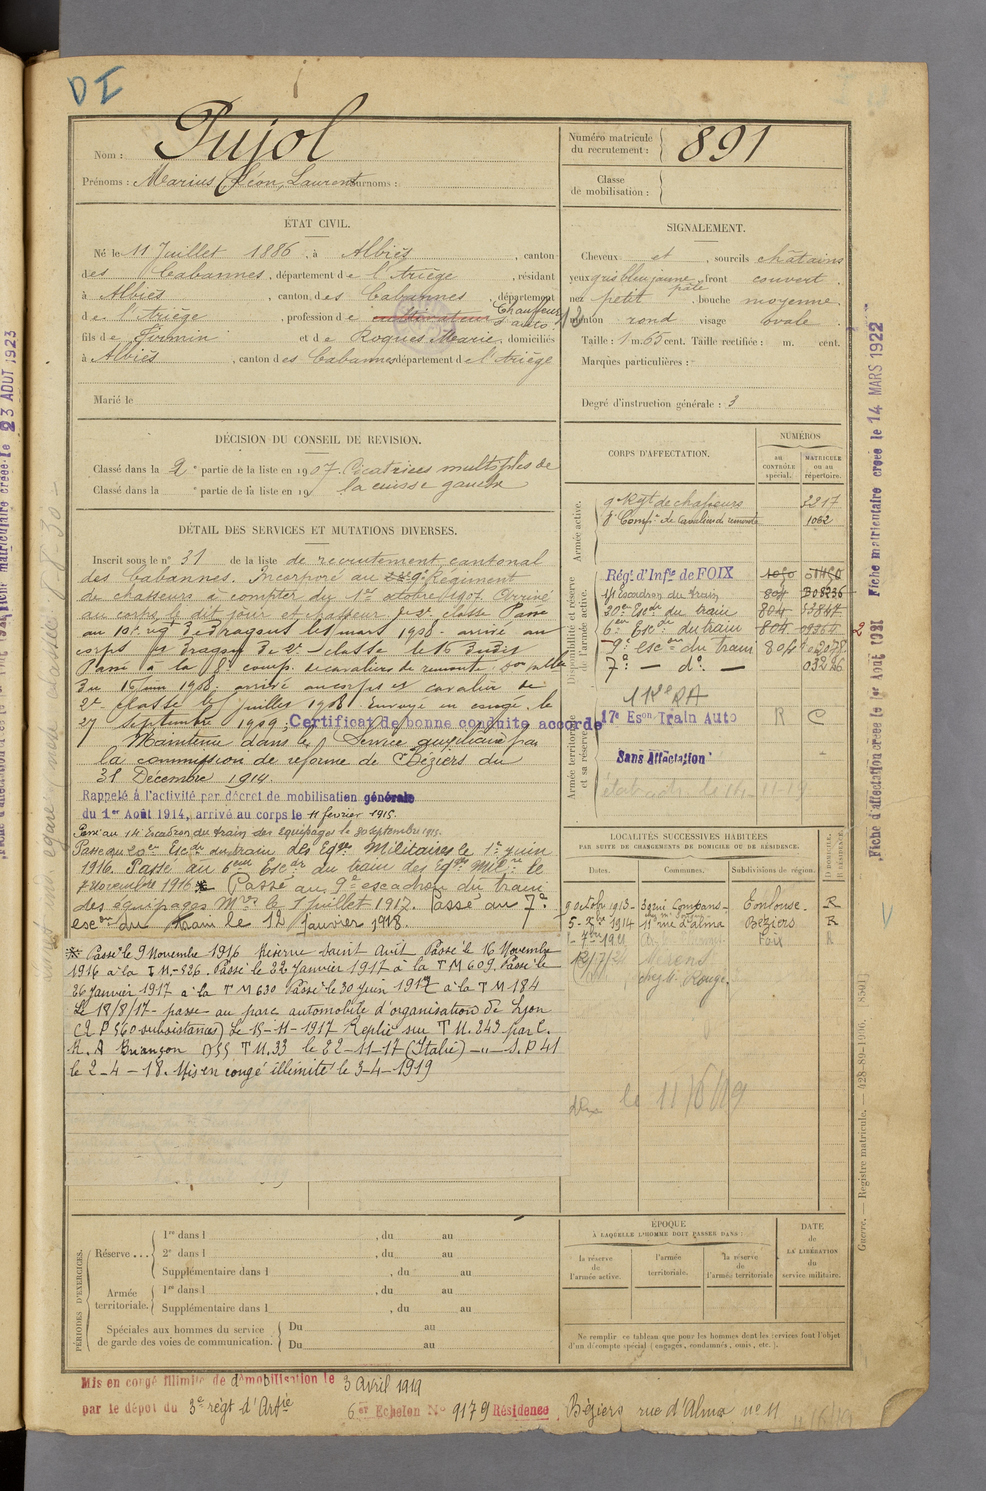 DI
Nom : Pujol
Prénoms : Marius Léon, Laurent Surnoms :
Numéro matricule du recrutement : 891
Classe de mobilisation :
ÉTAT CIVIL.
Né le 11 Juillet 1886, à Albiès, canton
des Cabannes, département de l'Ariège, résidant
à Albiès, canton des Cabannes, département
de l'Ariège, profession de cultivateur Chauffeur d'auto
fils de Firmin et de Roques Marie, domiciliés
à Albiès, canton des Cabannes département de l'Ariège
Marié le
SIGNALEMENT.
Cheveux et, sourcils châtains
yeux gris bleu jaune, front couvert
nez petit pâle, bouche moyenne
menton rond visage ovale.
Taille : 1 m. 65 cent. Taille rectifiée : m. cent.
Marques particulières :
Degré d'instruction générale : 3
DÉCISION DU CONSEIL DE REVISION.
Classé dans la 2e partie de la liste en 1907. Cicatrices multiples de
Classé dans la e partie de la liste en 19 la cuisse gauche
CORPS D'AFFECTATION.
NUMÉROS
AU CONTRÔLE spécial.
MATRICULE ou au répertoire.
Armée active.
9e Rgt de chasseurs 3217
8e Compie de Cavaliers de remonte 1052
Disponibilité et réserve de l'armée active.
Régt d'Infie de FOIX
14 Escadron du train 804 308236
20e Escdr du train 804 53847
6em Escdr du train 804
9e escon du train 804
7e — do — 03286
Armée territoriale et sa réserve.
17e Eson Train Auto R C
Sans Affectation
DÉTAIL DES SERVICES ET MUTATIONS DIVERSES.
Inscrit sous le n° 31 de la liste de recrutement cantonal
des Cabannes. Incorporé au 9e Régiment
de chasseurs à compter du 1er octobre 1907. Arrivé
au corps le dit jour et chasseur de 2e classe. Passé
au 10e rég de Dragons le 1 mars 1908. arrivé au
corps et dragon de 2e classe le 16 dudit
Passé à la 8e comp. de cavaliers de remonte
du 16 juin 1908. arrivé au corps et cavalier de
2e classe le juillet 1908. Envoyé en congé le
27 septembre 1909. Certificat de bonne conduite accordé
Maintenu dans le Service auxiliaire par
la commission de réforme de Béziers du
31 Décembre 1914.
Rappelé à l'activité par décret de mobilisation générale
du 1er Août 1914, arrivé au corps le 11 février 1915.
Passé au 14 Escadron du train des équipages le 20 septembre 1915.
Passé au 20e Escdr du train des Eqges Militaires le 1er juin
1916. Passé au 6eme Escdr du train des Eqges Milre le
7 Novembre 1916 * Passé au 9e escadron du train
des équipages Mres le 1 Juillet 1917. Passé au 7e
escon du train le 12 Janvier 1918.
* Passé le 9 Novembre 1916 Réserve Parc Passé le 16 Novembre
1916 à la T M-826. Passé le 22 Janvier 1917 à la T M 609. Passé le
26 Janvier 1917 à la T M 630 Passé le 30 Juin 1917 à la T M 184
Le 18/8/17 passe au parc automobile d'organisation de Lyon
(R P 560 subsistances) Le 15-11-1917 Replié sur T M. 243 par C.
R. A Briançon T M. 33 le 22-11-17 (Italie) —„— S. P 41
le 2-4-18. Mis en congé illimité le 3-4-1919
LOCALITÉS SUCCESSIVES HABITÉES
PAR SUITE DE CHANGEMENTS DE DOMICILE OU DE RÉSIDENCE.
Dates. Communes. Subdivisions de région. D. DOMICILE. R. RÉSIDENCE.
9 octobre 1913 Compans Toulouse R
1914 11 rue d'alma Béziers R
Foix R
le 11/6/19
PÉRIODES D'EXERCICES.
Réserve ...
1re dans l , du au
2e dans l , du au
Supplémentaire dans l , du au
Armée territoriale.
1re dans l , du au
Supplémentaire dans l , du au
Spéciales aux hommes du service de garde des voies de communication.
Du au
Du au
ÉPOQUE
À LAQUELLE L'HOMME DOIT PASSER DANS :
la réserve de l'armée active.
l'armée territoriale.
la réserve de l'armée territoriale
DATE de LA LIBÉRATION du service militaire.
Ne remplir ce tableau que pour les hommes dont les services font l'objet
d'un décompte spécial (engagés, condamnés, omis, etc.).
Mis en congé illimité de démobilisation le 3 avril 1919
par le dépôt du 3e régt d'Artie
6er Echelon N° 9179 Résidence Béziers rue d'Alma n° 11
Fiche matriculaire créée le 23 AOUT 1923
Fiche matriculaire créée le 14 MARS 1922
Fiche d'affectation créée le 1er Août 1921
Guerre. — Registre matricule. — 428-89-1906. [8501]